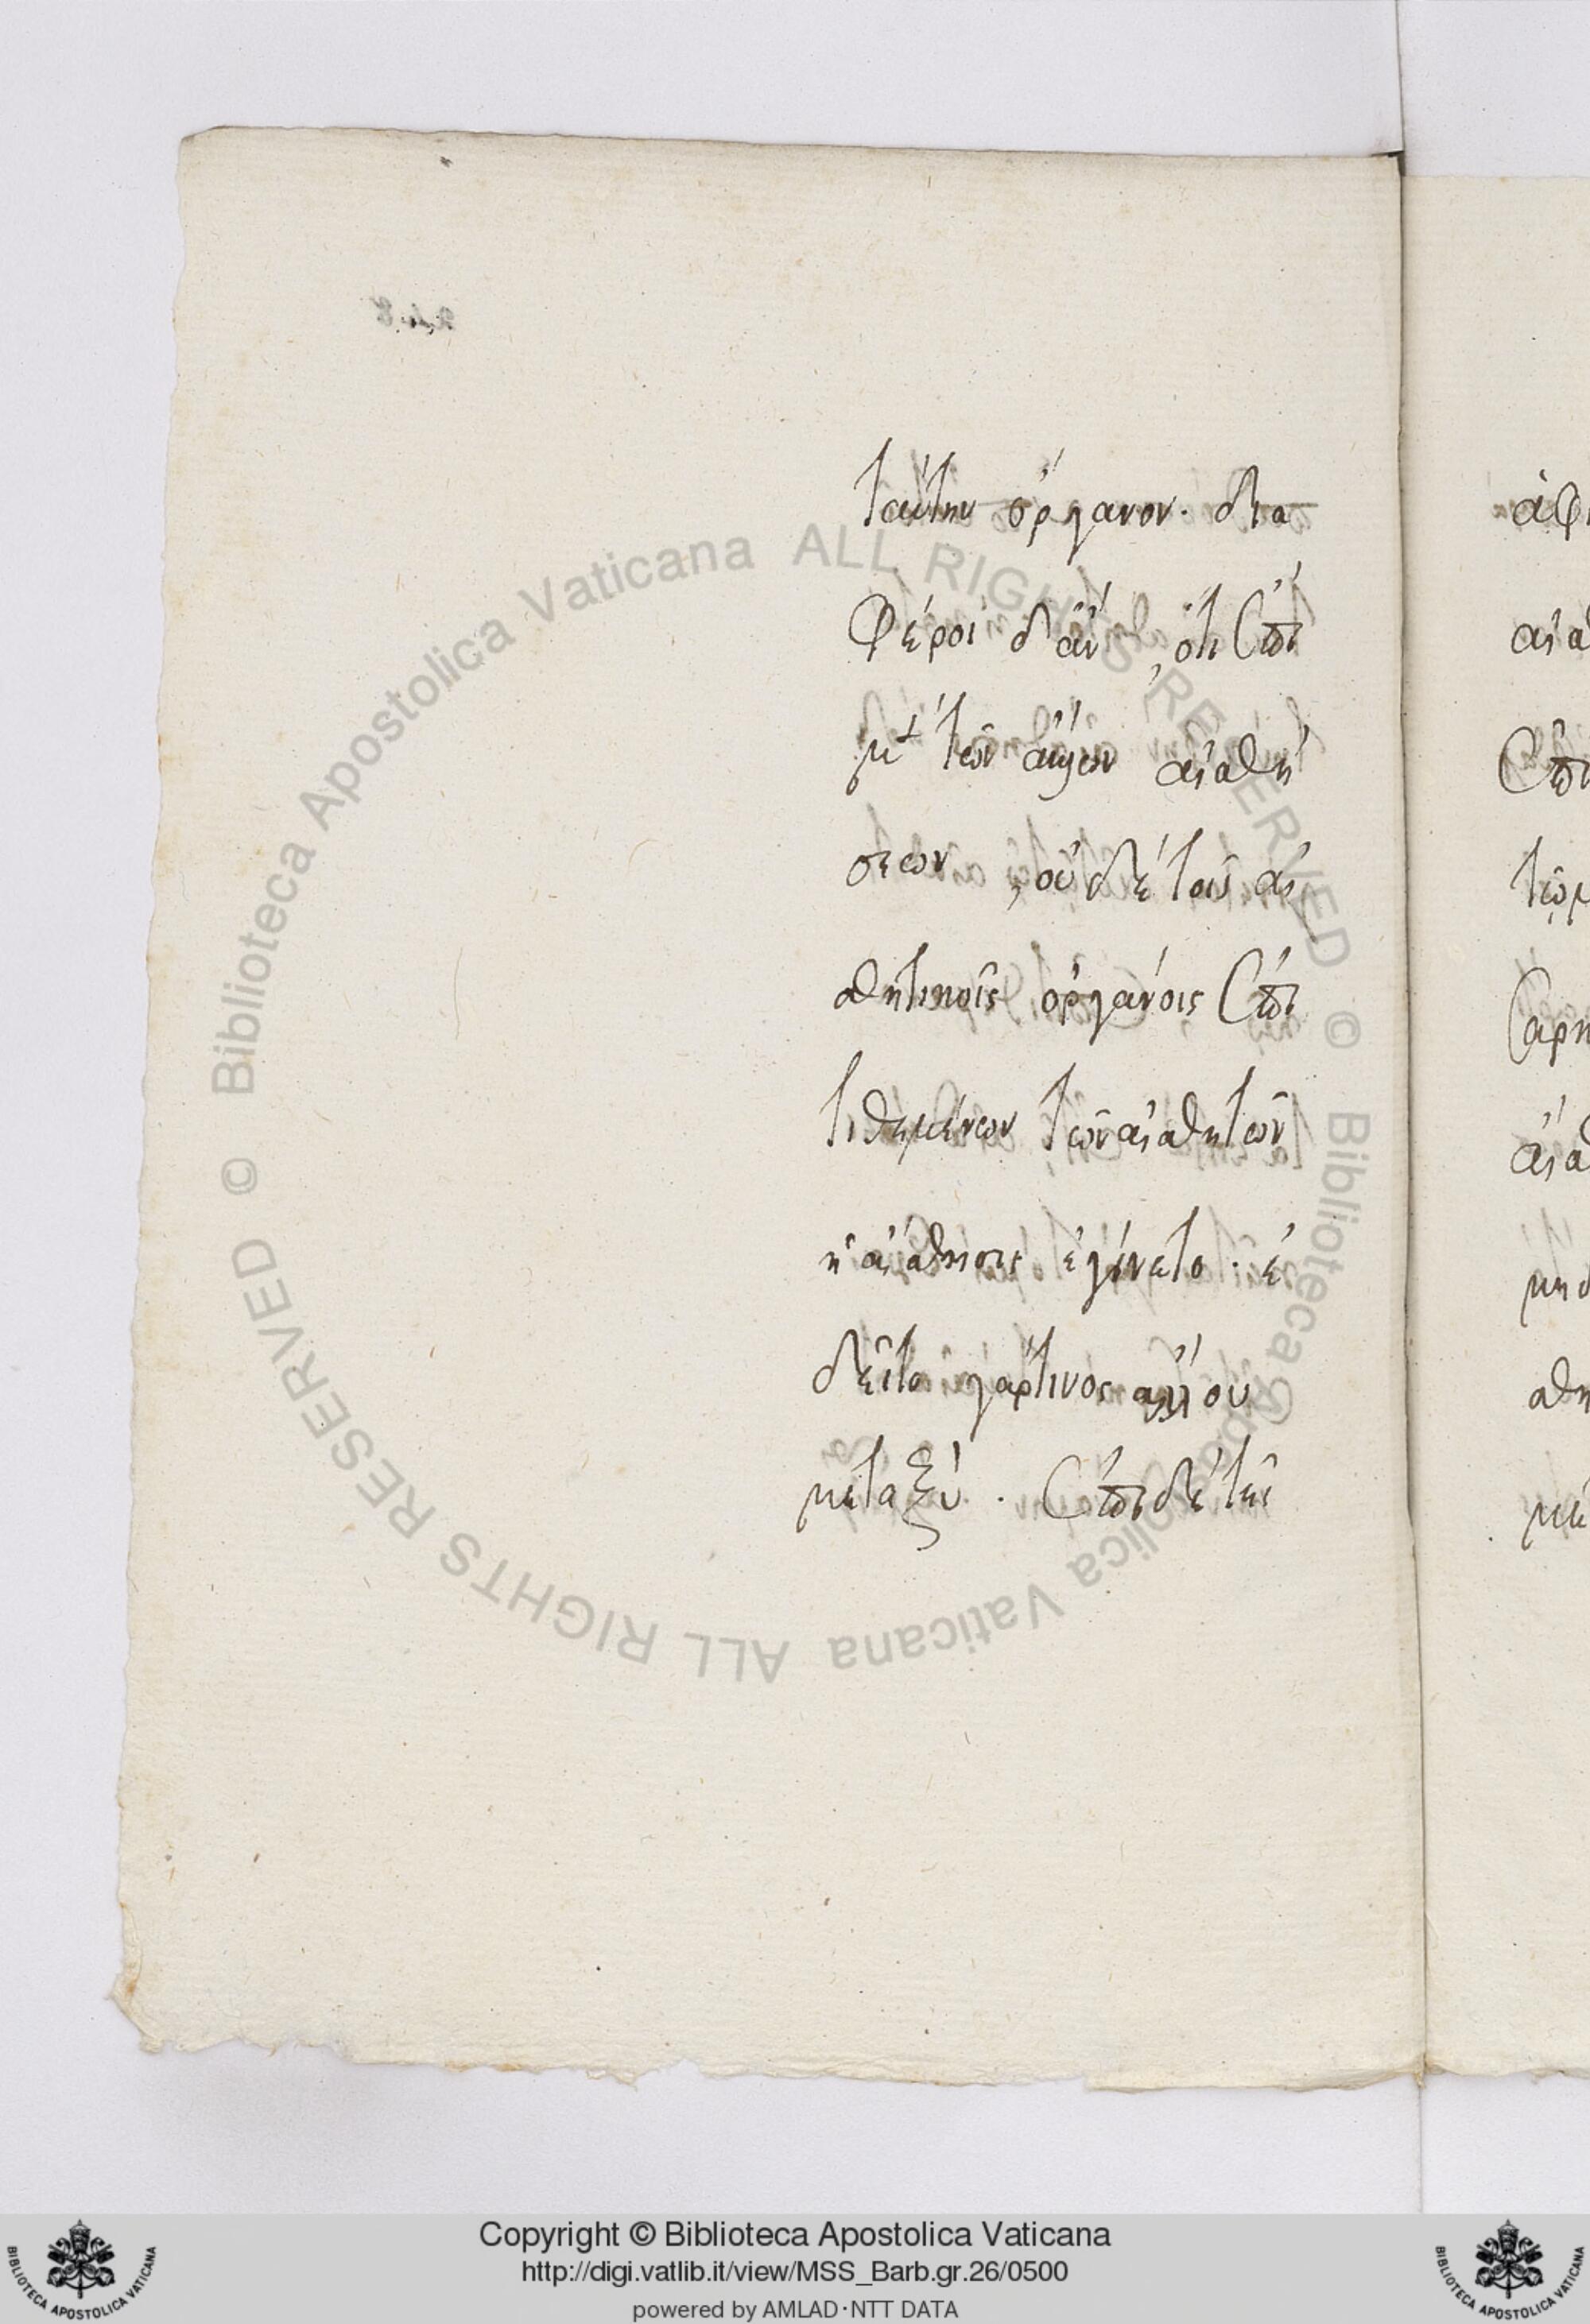 ταύτην ὄργανον. δια
φέροι δ' ἂν, ὅτι ἐπὶ
μὲν τῶν ἄλλων αἰσθή
σεων, οὐδὲ τοῖς αἰ
σθητικοῖς ὀργάνοις ἐπι
τιθεμένων τῶν αἰσθητῶν
ἡ αἴσθησις ἐγίνετο. ἐ
δεῖτο γάρ τινος ἄλλου
μεταξύ. ἐπὶ δὲ τῆς
© Biblioteca Apostolica Vaticana ALL RIGHTS RESERVED © Biblioteca Apostolica Vaticana ALL RIGHTS RESERVED
Copyright © Biblioteca Apostolica Vaticana
http://digi.vatlib.it/view/MSS_Barb.gr.26/0500
powered by AMLAD·NTT DATA
BIBLIOTECA APOSTOLICA VATICANA
BIBLIOTECA APOSTOLICA VATICANA